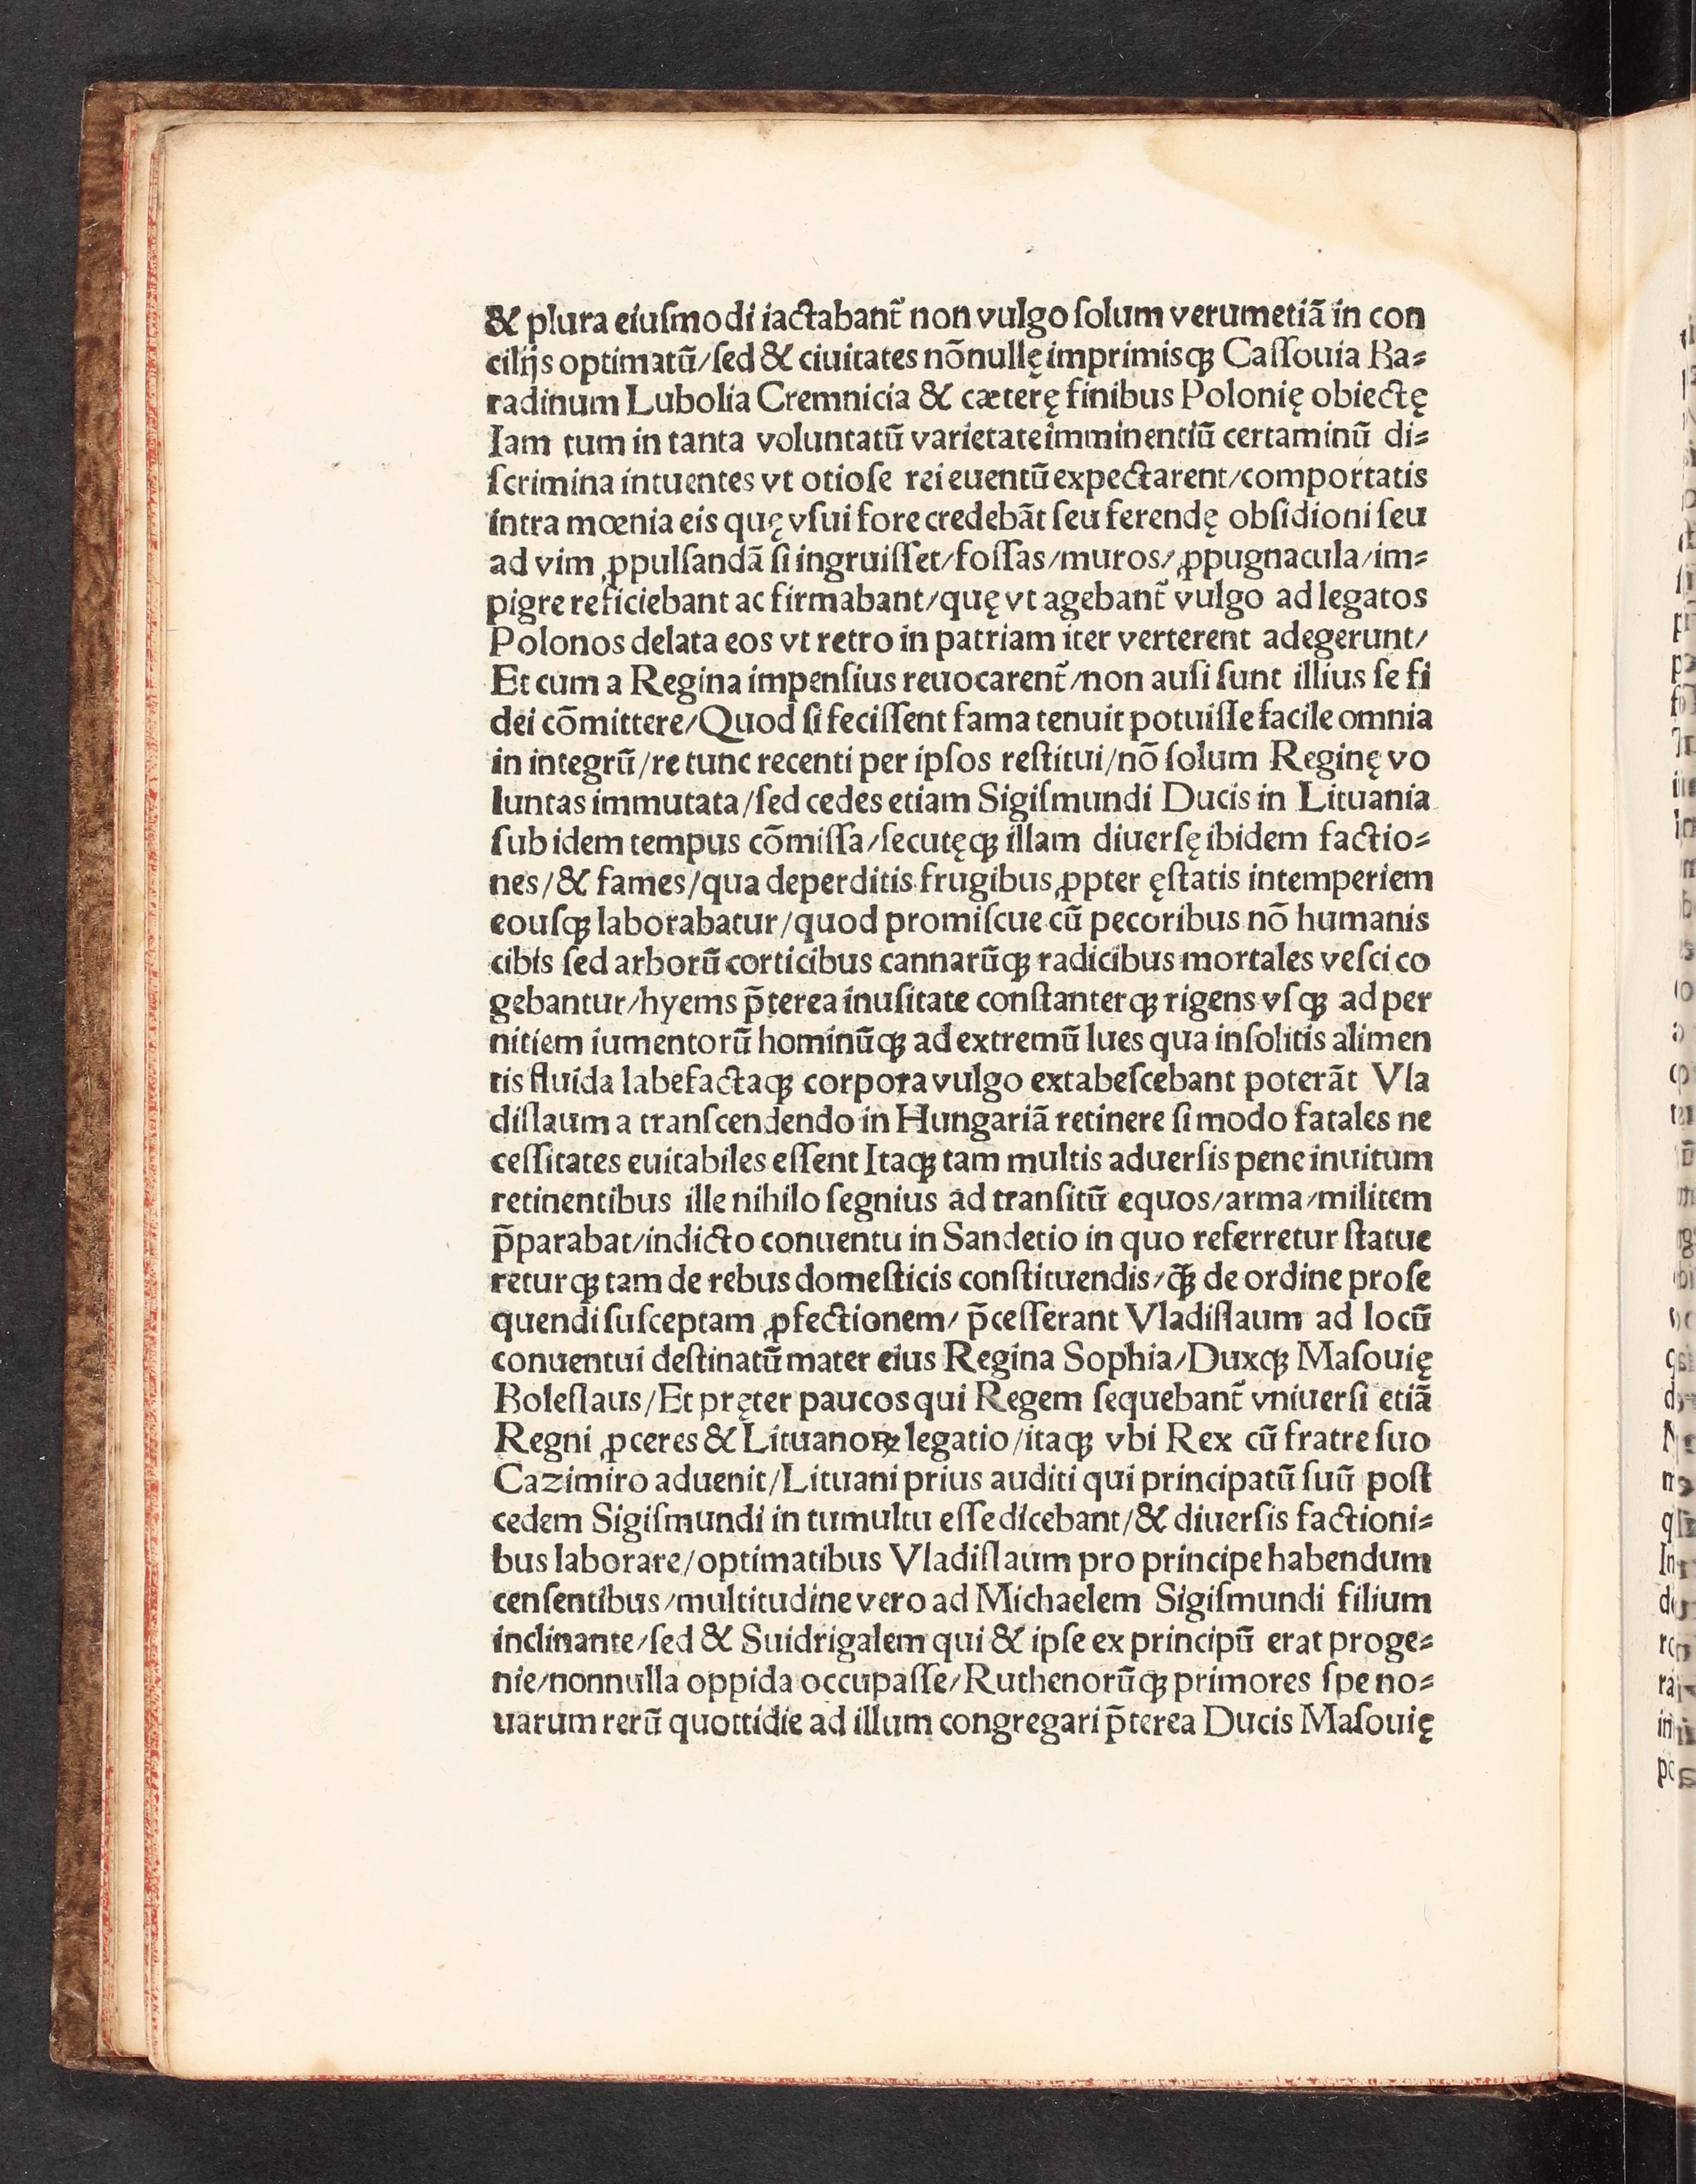 & plura eiuſmodi iactabant᷑ non vulgo ſolum verumetiā in con
cilijs optimatū/ſed & ciuitates nōnullę imprimisqꝫ Caſſouia Ba⸗
radinum Lubolia Cremnicia & cæterę finibus Polonię obiectę
Iam tum in tanta voluntatū varietate imminentiū certaminū di⸗
ſcrimina intuentes vt otioſe rei euentū expectarent/comportatis
intra mœnia eis quę vſui fore credebāt ſeu ferendę obſidioni ſeu
ad vim ꝓpulſandā ſi ingruiſſet/foſſas/muros/ꝓpugnacula/im⸗
pigre reficiebant ac firmabant/quę vt agebant᷑ vulgo ad legatos
Polonos delata eos vt retro in patriam iter verterent adegerunt/
Et cum a Regina impenſius reuocarent᷑/non auſi ſunt illius ſe fi
dei cōmittere/Quod ſi feciſſent fama tenuit potuiſſe facile omnia
in integrū/re tunc recenti per ipſos reſtitui/nō ſolum Reginę vo
luntas immutata/ſed cedes etiam Sigiſmundi Ducis in Lituania
ſub idem tempus cōmiſſa/ſecutęqꝫ illam diuerſę ibidem factio⸗
nes/& fames/qua deperditis frugibus ꝓpter ęſtatis intemperiem
eouſqꝫ laborabatur/quod promiſcue cū pecoribus nō humanis
cibis ſed arborū corticibus cannarūqꝫ radicibus mortales veſci co
gebantur/hyems p̄terea inuſitate conſtanterqꝫ rigens vſqꝫ ad per
nitiem iumentorū hominūqꝫ ad extremū lues qua inſolitis alimen
tis fluida labefactaqꝫ corpora vulgo extabeſcebant poterāt Vla
diſlaum a tranſcendendo in Hungariā retinere ſi modo fatales ne
ceſſitates euitabiles eſſent Itaqꝫ tam multis aduerſis pene inuitum
retinentibus ille nihilo ſegnius ad tranſitū equos/arma/militem
p̄parabat/indicto conuentu in Sandetio in quo referretur ſtatue
returqꝫ tam de rebus domeſticis conſtituendis/qꝫ̄ de ordine proſe
quendi ſuſceptam ꝓfectionem/ p̄ceſſerant Vladiſlaum ad locū
conuentui deſtinatū mater eius Regina Sophia/Duxqꝫ Maſouię
Boleſlaus/Et pręter paucos qui Regem ſequebant᷑ vniuerſi etiā
Regni ꝓceres & Lituanoꝝ legatio/itaqꝫ vbi Rex cū fratre ſuo
Cazimiro aduenit/Lituani prius auditi qui principatū ſuū poſt
cedem Sigiſmundi in tumultu eſſe dicebant/& diuerſis factioni⸗
bus laborare/optimatibus Vladiſlaum pro principe habendum
cenſentibus/multitudine vero ad Michaelem Sigiſmundi filium
inclinante/ſed & Suidrigalem qui & ipſe ex principū erat proge⸗
nie/nonnulla oppida occupaſſe/Ruthenorūqꝫ primores ſpe no⸗
uarum rerū quottidie ad illum congregari p̄terea Ducis Maſouię